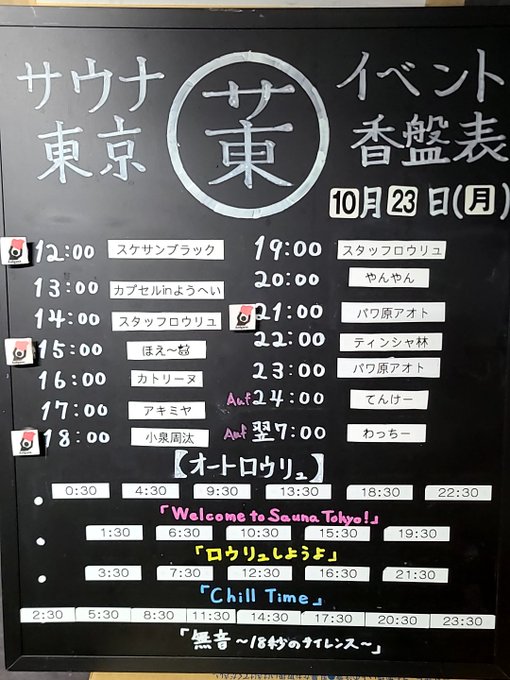 サウナ
東京
サ東
イベント
香盤表
10月23日(月)
12:00 スケサンブラック
13:00 カプセルinようへい
14:00 スタッフロウリュ
15:00 ほえ〜
16:00 カトリーヌ
17:00 アキミヤ
18:00 小泉周汰
19:00 スタッフロウリュ
20:00 やんやん
21:00 パワ原アオト
22:00 ティンシャ林
23:00 パワ原アオト
Auf 24:00 てんけー
Auf 翌7:00 わっちー
【オートロウリュ】
0:30 4:30 9:30 13:30 18:30 22:30
「Welcome to Sauna Tokyo!」
1:30 6:30 10:30 15:30 19:30
「ロウリュしようよ」
3:30 7:30 12:30 16:30 21:30
「Chill Time」
2:30 5:30 8:30 11:30 14:30 17:30 20:30 23:30
「無音〜18秒のサイレンス〜」